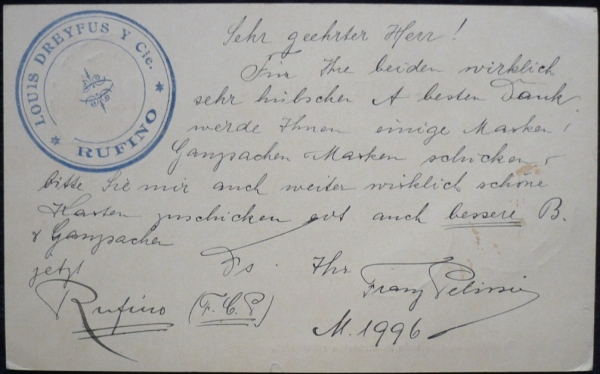 LOUIS DREYFUS Y Cie.
* RUFINO *
Sehr geehrter Herr!
Für Ihre beiden wirklich
sehr hübschen A besten Dank
werde Ihnen einige Marken,
Ganzsachen Marken schicken
bitte Sie mir auch weiter wirklich schöne
Karten zuschicken evt auch bessere B.
& Ganzsachen
jetzt Ihr
Rufino (F.C.P) Franz
M. 1996